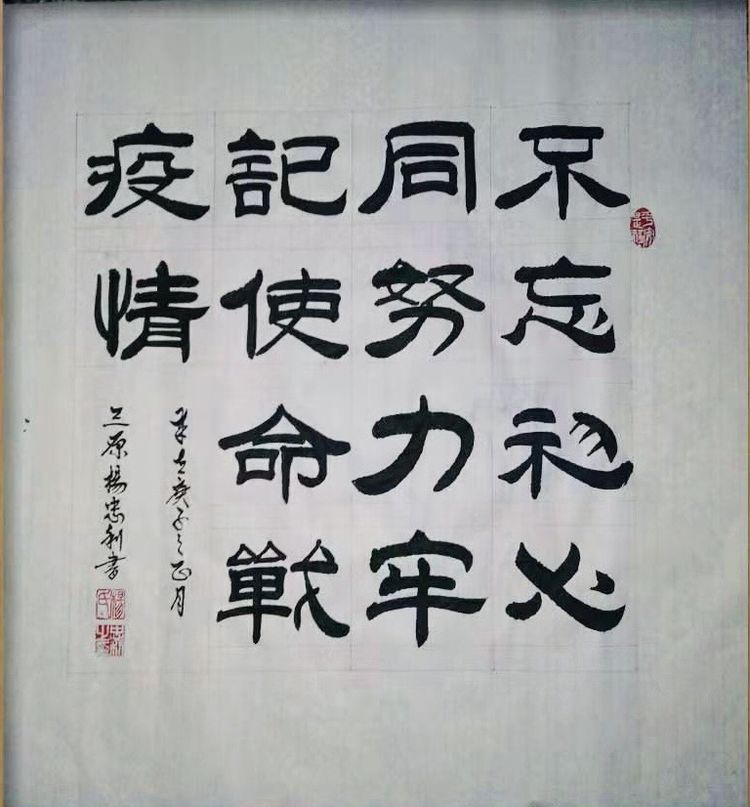 不忘初心
同努力牢
記使命戰
疫情
辛丑庚子之正月
三原楊忠利書